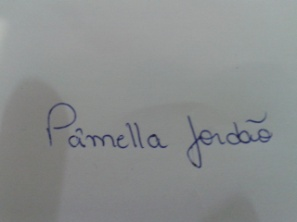 Pâmella Jordão